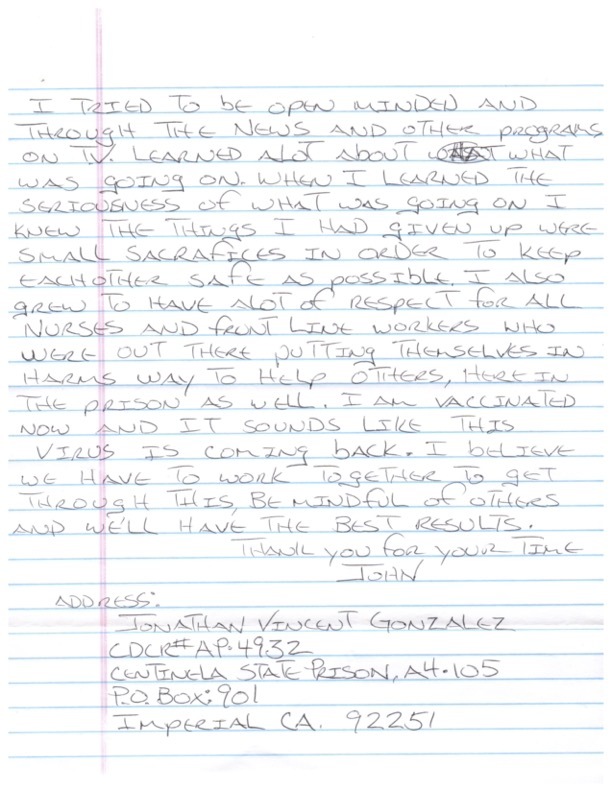 I TRIED TO BE OPEN MINDED AND
THROUGH THE NEWS AND OTHER PROGRAMS
ON TV. LEARNED ALOT ABOUT WHAT
WAS GOING ON. WHEN I LEARNED THE
SERIOUSNESS OF WHAT WAS GOING ON I
KNEW THE THINGS I HAD GIVEN UP WERE
SMALL SACRAFICES IN ORDER TO KEEP
EACHOTHER SAFE AS POSSIBLE. I ALSO
GREW TO HAVE ALOT OF RESPECT FOR ALL
NURSES AND FRONT LINE WORKERS WHO
WERE OUT THERE PUTTING THEMSELVES IN
HARMS WAY TO HELP OTHERS, HERE IN
THE PRISON AS WELL. I AM VACCINATED
NOW AND IT SOUNDS LIKE THIS
VIRUS IS COMING BACK. I BELIEVE
WE HAVE TO WORK TOGETHER TO GET
THROUGH THIS, BE MINDFUL OF OTHERS
AND WE'LL HAVE THE BEST RESULTS.
THANK YOU FOR YOUR TIME
JOHN
ADDRESS:
JONATHAN VINCENT GONZALEZ
CDCR# AP·4932
CENTINELA STATE PRISON, A4·105
P.O. BOX: 901
IMPERIAL CA. 92251